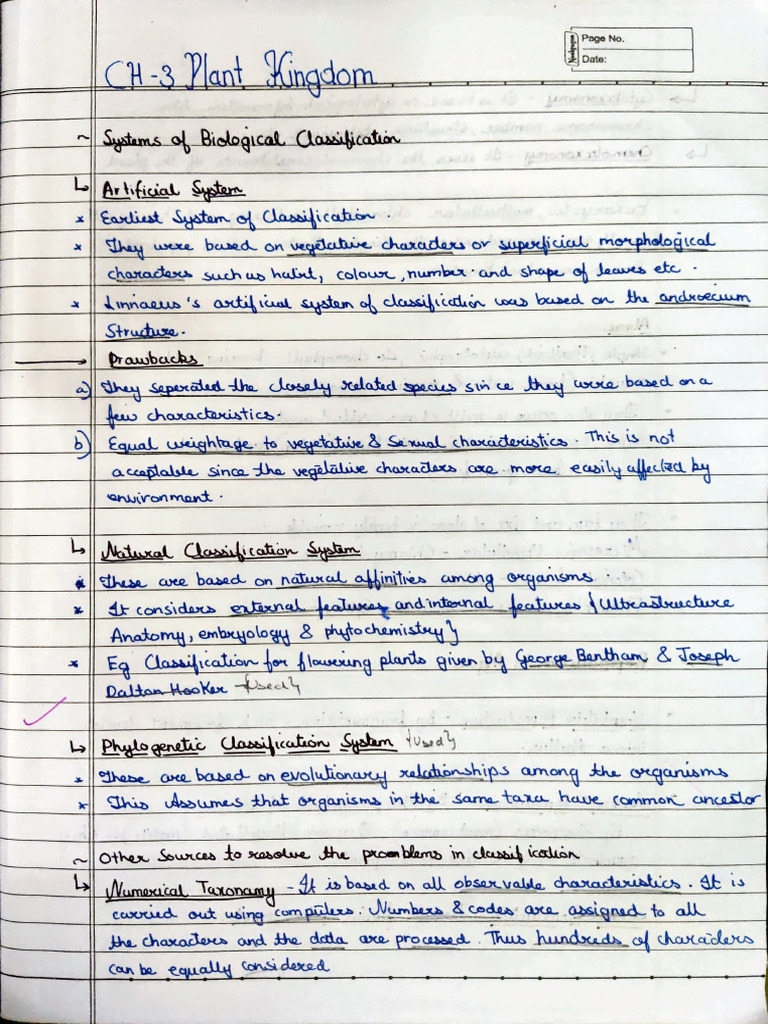 Page No.
Date:
CH-3 Plant Kingdom
~ Systems of Biological Classification
↳ Artificial System
* Earliest System of Classification.
* They were based on vegetative characters or superficial morphological
characters such as habit, colour, number and shape of leaves etc.
* Linnaeus's artificial system of classification was based on the androecium
Structure.
→ Drawbacks
a) They seperated the closely related species since they were based on a
few characteristics.
b) Equal weightage to vegetative & Sexual characteristics. This is not
acceptable since the vegetative characters are more easily affected by
environment.
↳ Natural Classification System
* These are based on natural affinities among organisms
* It considers external features and internal features {Ultrastructure
Anatomy, embryology & phytochemistry}
* Eg Classification for flowering plants given by George Bentham & Joseph
Dalton Hooker {Used}
↳ Phylogenetic Classification System {Used}
* These are based on evolutionary relationships among the organisms
* This Assumes that organisms in the same taxa have common ancestor
~ Other Sources to resolve the problems in classification
↳ Numerical Taxonomy - It is based on all observable characteristics. It is
carried out using computers. Numbers & codes are assigned to all
the characters and the data are processed. Thus hundreds of characters
can be equally considered